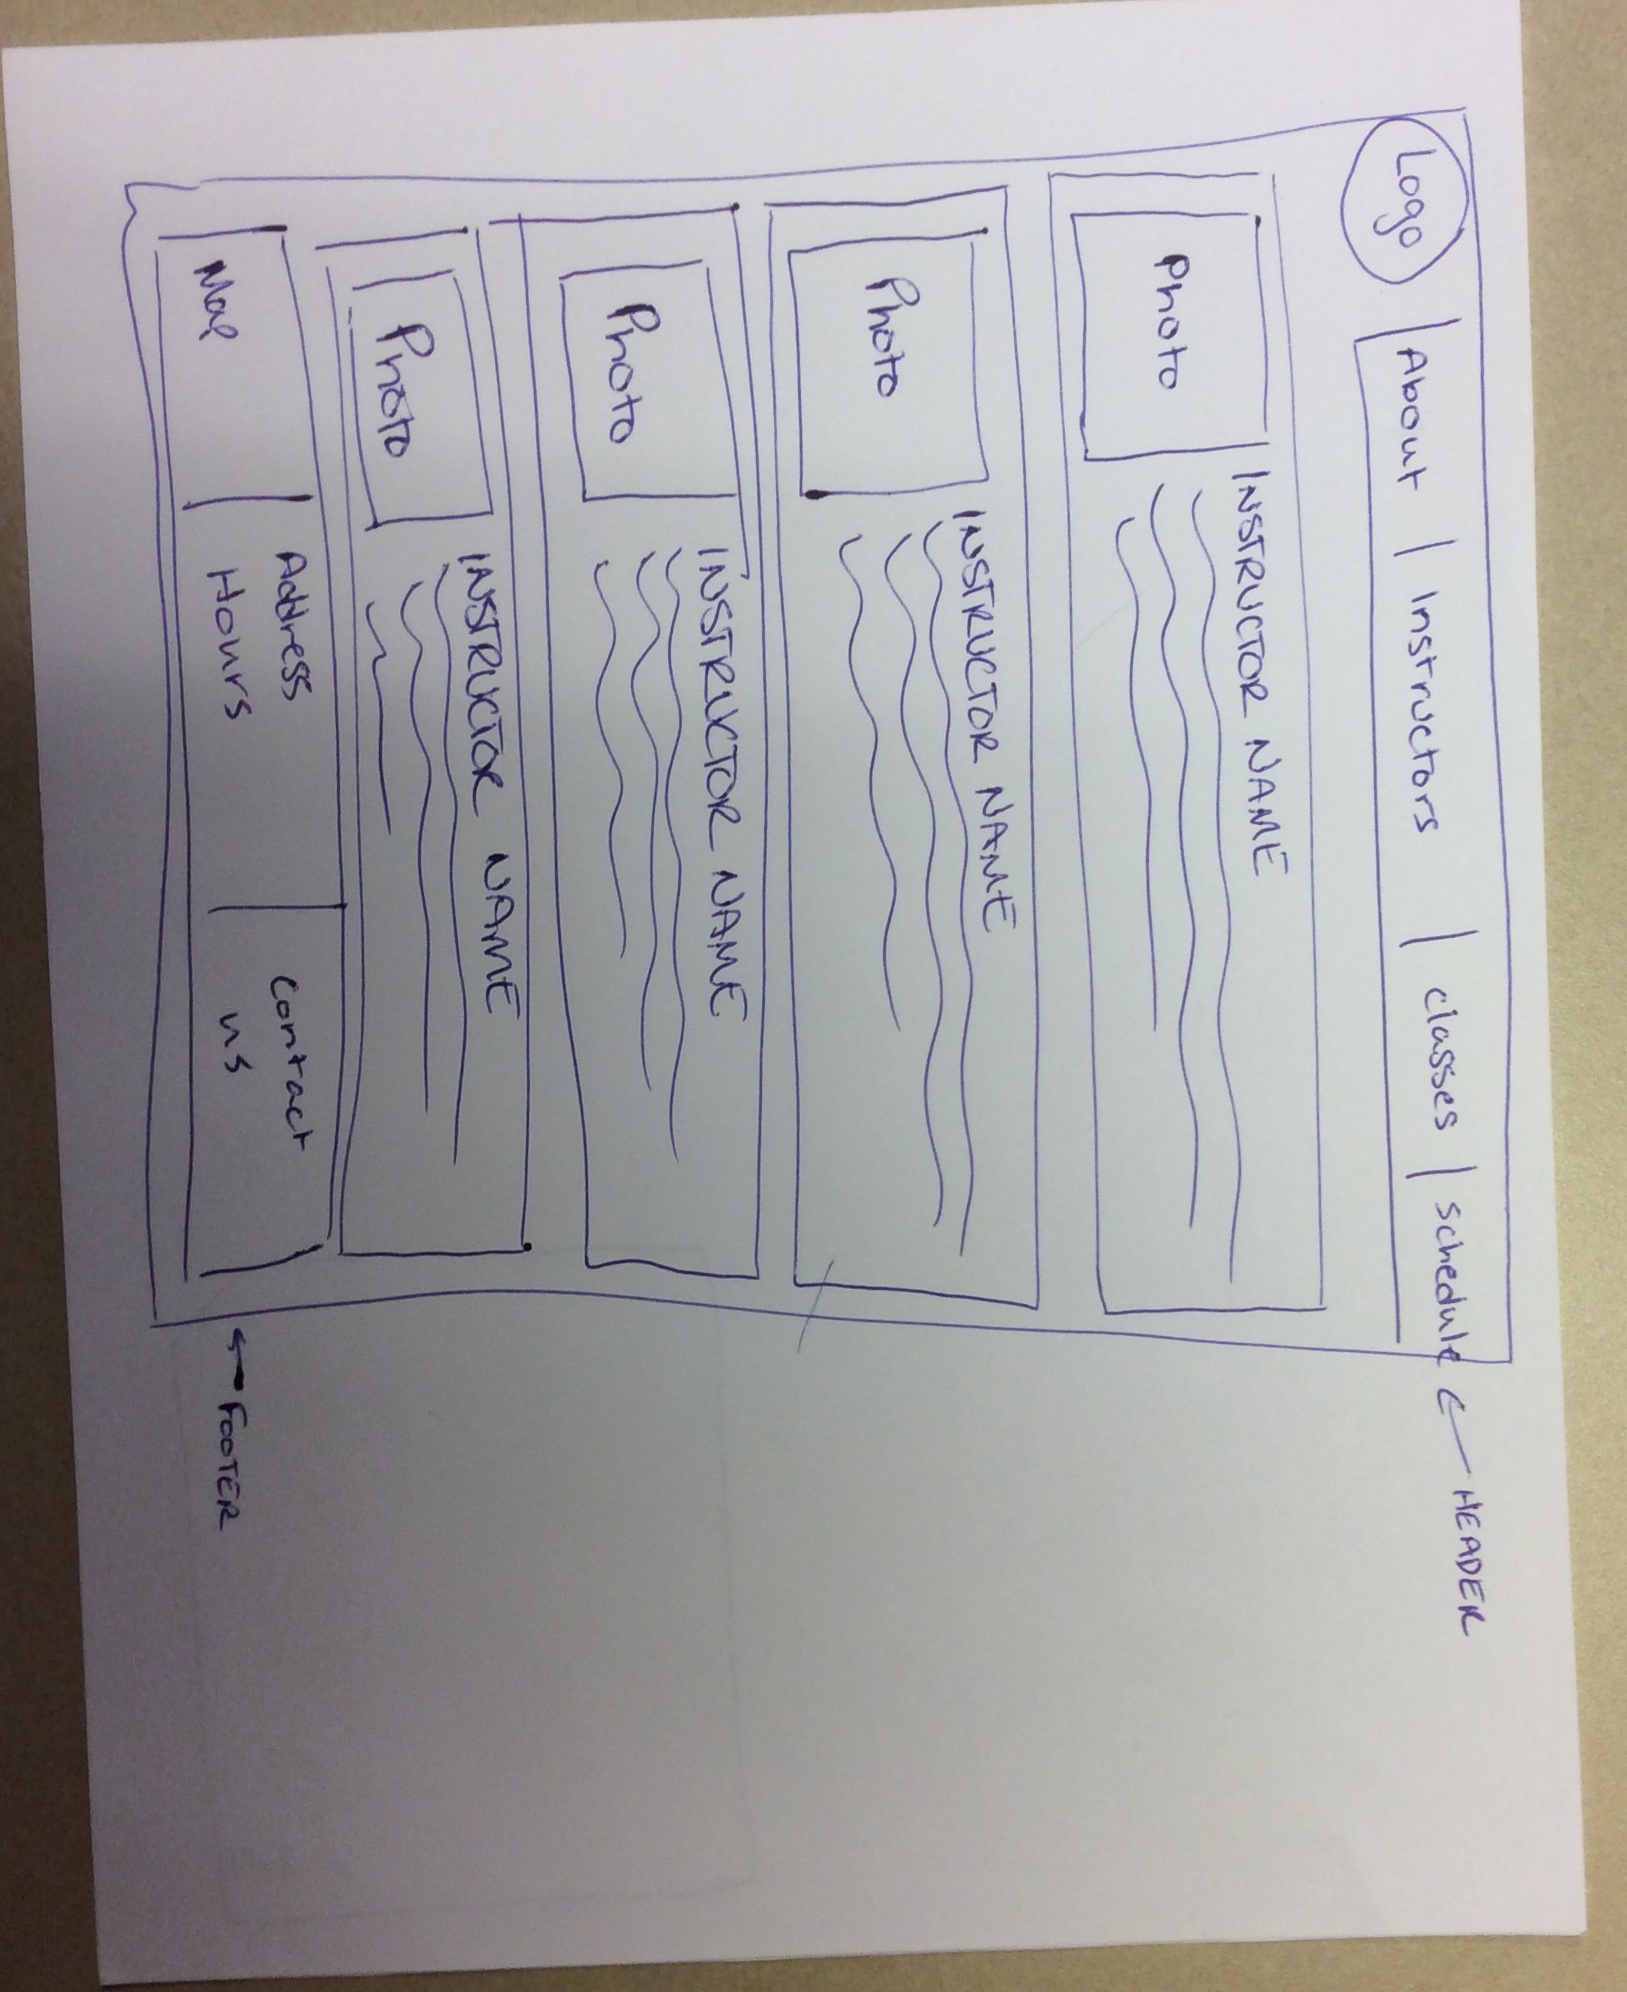 Logo
About | Instructors | classes | schedule
HEADER
Photo
INSTRUCTOR NAME
Photo
INSTRUCTOR NAME
Photo
INSTRUCTOR NAME
Photo
INSTRUCTOR NAME
Map
Address
Hours
contact
us
FOOTER